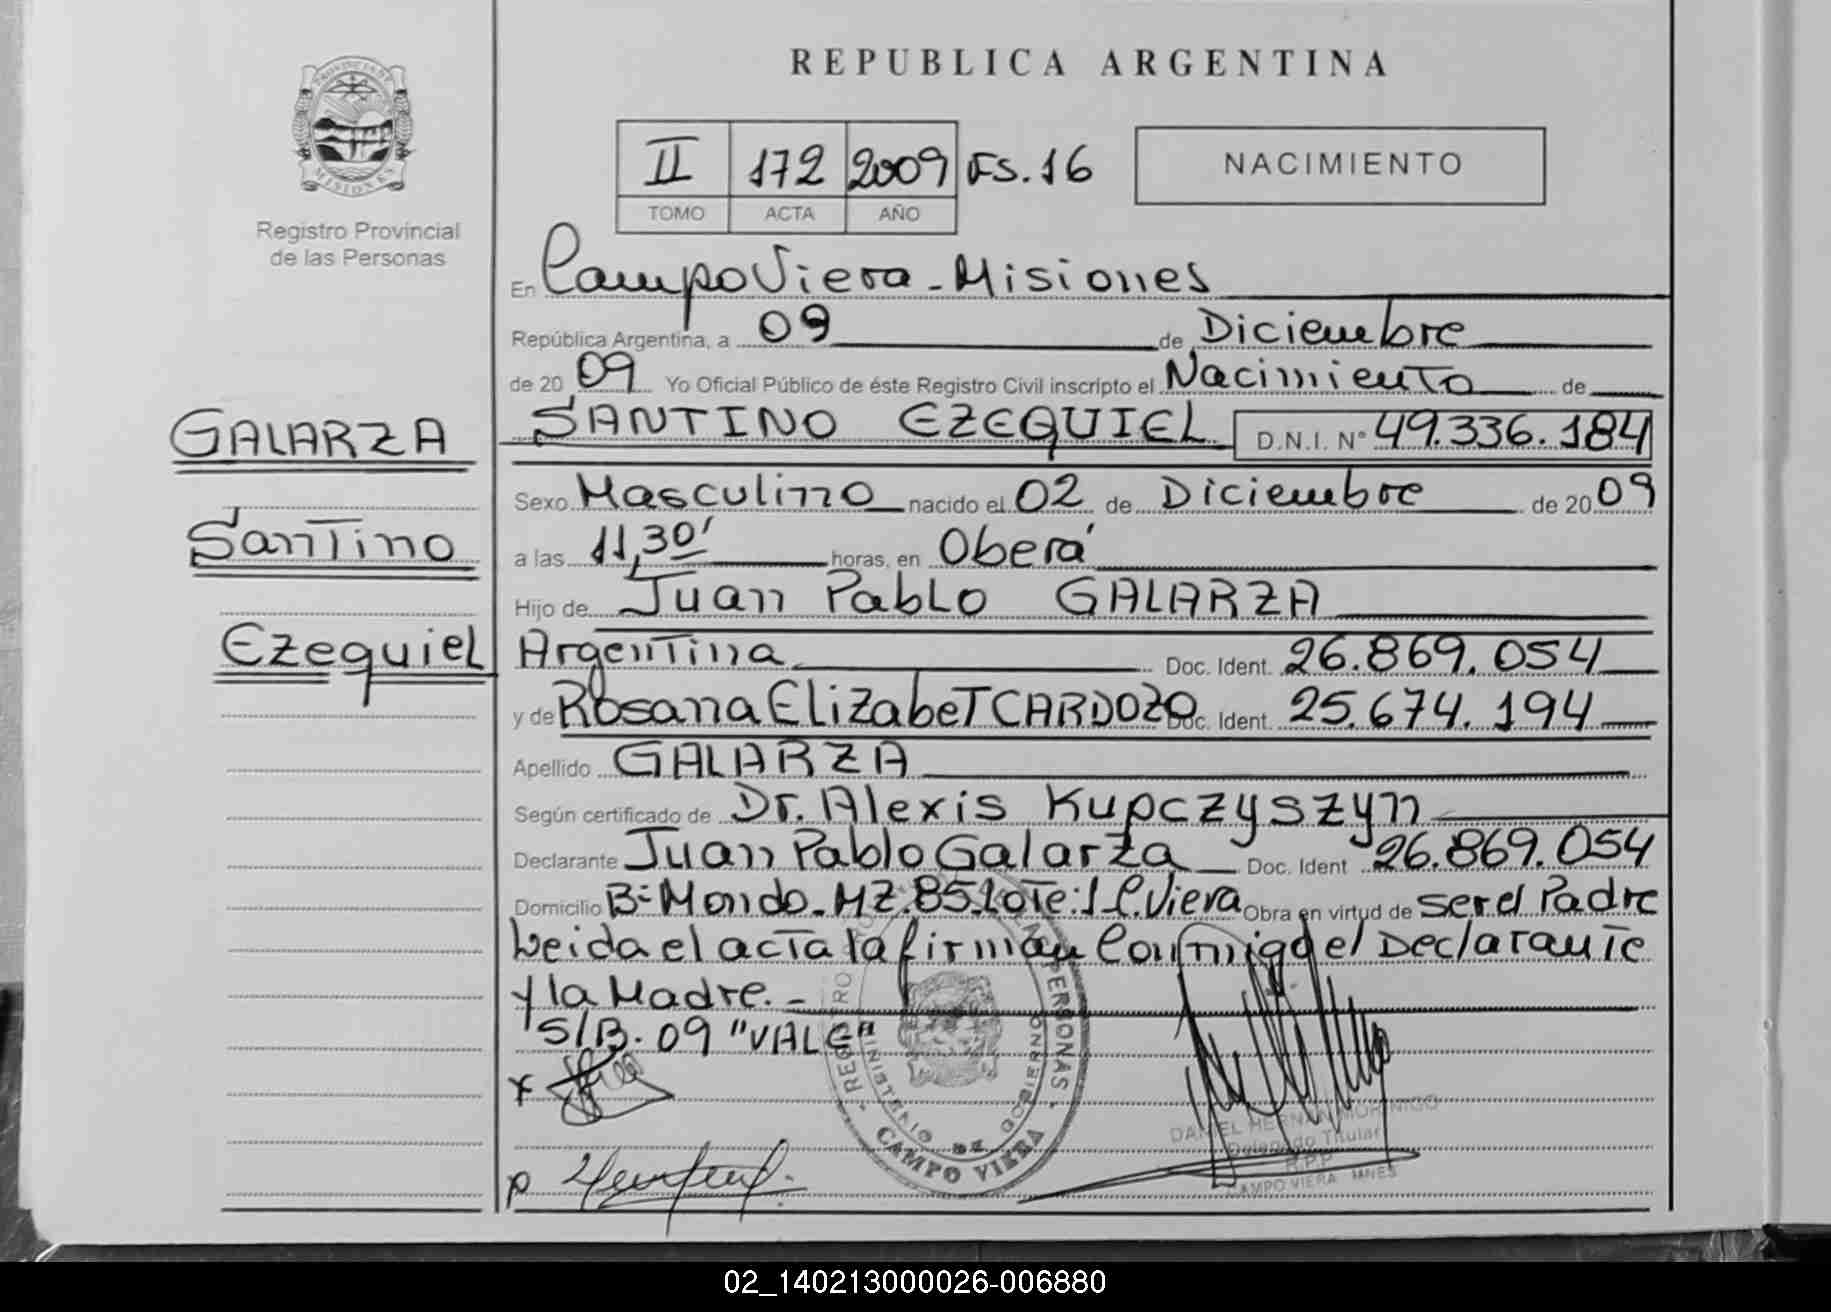 REPUBLICA ARGENTINA
PROVINCIA DE MISIONES
Registro Provincial
de las Personas
II 172 2009 FS.16
TOMO ACTA AÑO
NACIMIENTO
En Campo Viera - Misiones
República Argentina, a 09 de Diciembre
de 20 09 Yo Oficial Público de éste Registro Civil inscripto el Nacimiento de
GALARZA
SANTINO EZEQUIEL D.N.I. N° 49.336.184
Sexo Masculino nacido el 02 de Diciembre de 20 09
Santino
a las 11,30' horas, en Oberá
Hijo de Juan Pablo GALARZA
Ezequiel
Argentina Doc. Ident. 26.869.054
y de Rosana Elizabet CARDOZO Doc. Ident. 25.674.194
Apellido GALARZA
Según certificado de Dr. Alexis Kupczyszyn
Declarante Juan Pablo Galarza Doc. Ident 26.869.054
Domicilio B= Mondo - MZ.85.Lote:1 C.Viera Obra en virtud de ser el Padre
Leida el acta la firman conmigo el Declarante
y la Madre. -
S/B. 09 "VALE"
REGISTRO PERSONAS
MINISTERIO DE GOBIERNO
CAMPO VIERA
DANIEL HERNAN MORINIGO
Delegado Titular
R.P.P.
CAMPO VIERA MNES
02_140213000026-006880